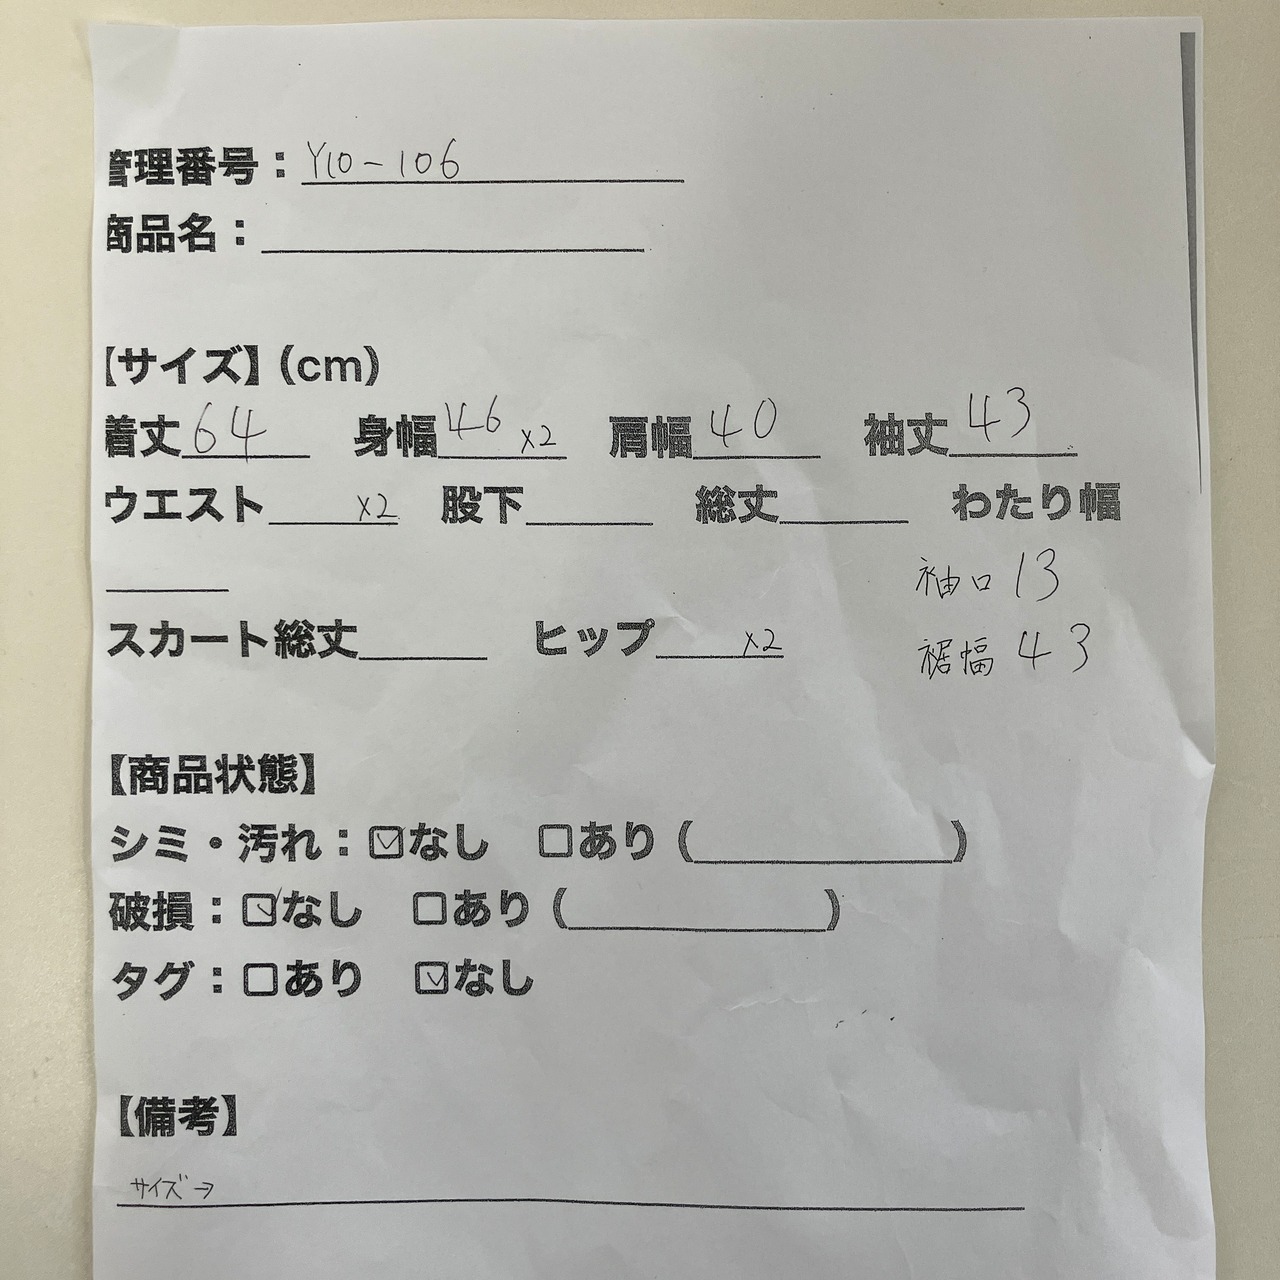 管理番号：Y10-106
商品名：
【サイズ】(cm)
着丈64 身幅46 x2 肩幅40 袖丈43
ウエスト x2 股下 総丈 わたり幅
袖口 13
スカート総丈 ヒップ x2 裾幅 43
【商品状態】
シミ・汚れ：☑なし □あり ( )
破損：☑なし □あり ( )
タグ：□あり ☑なし
【備考】
サイズ→